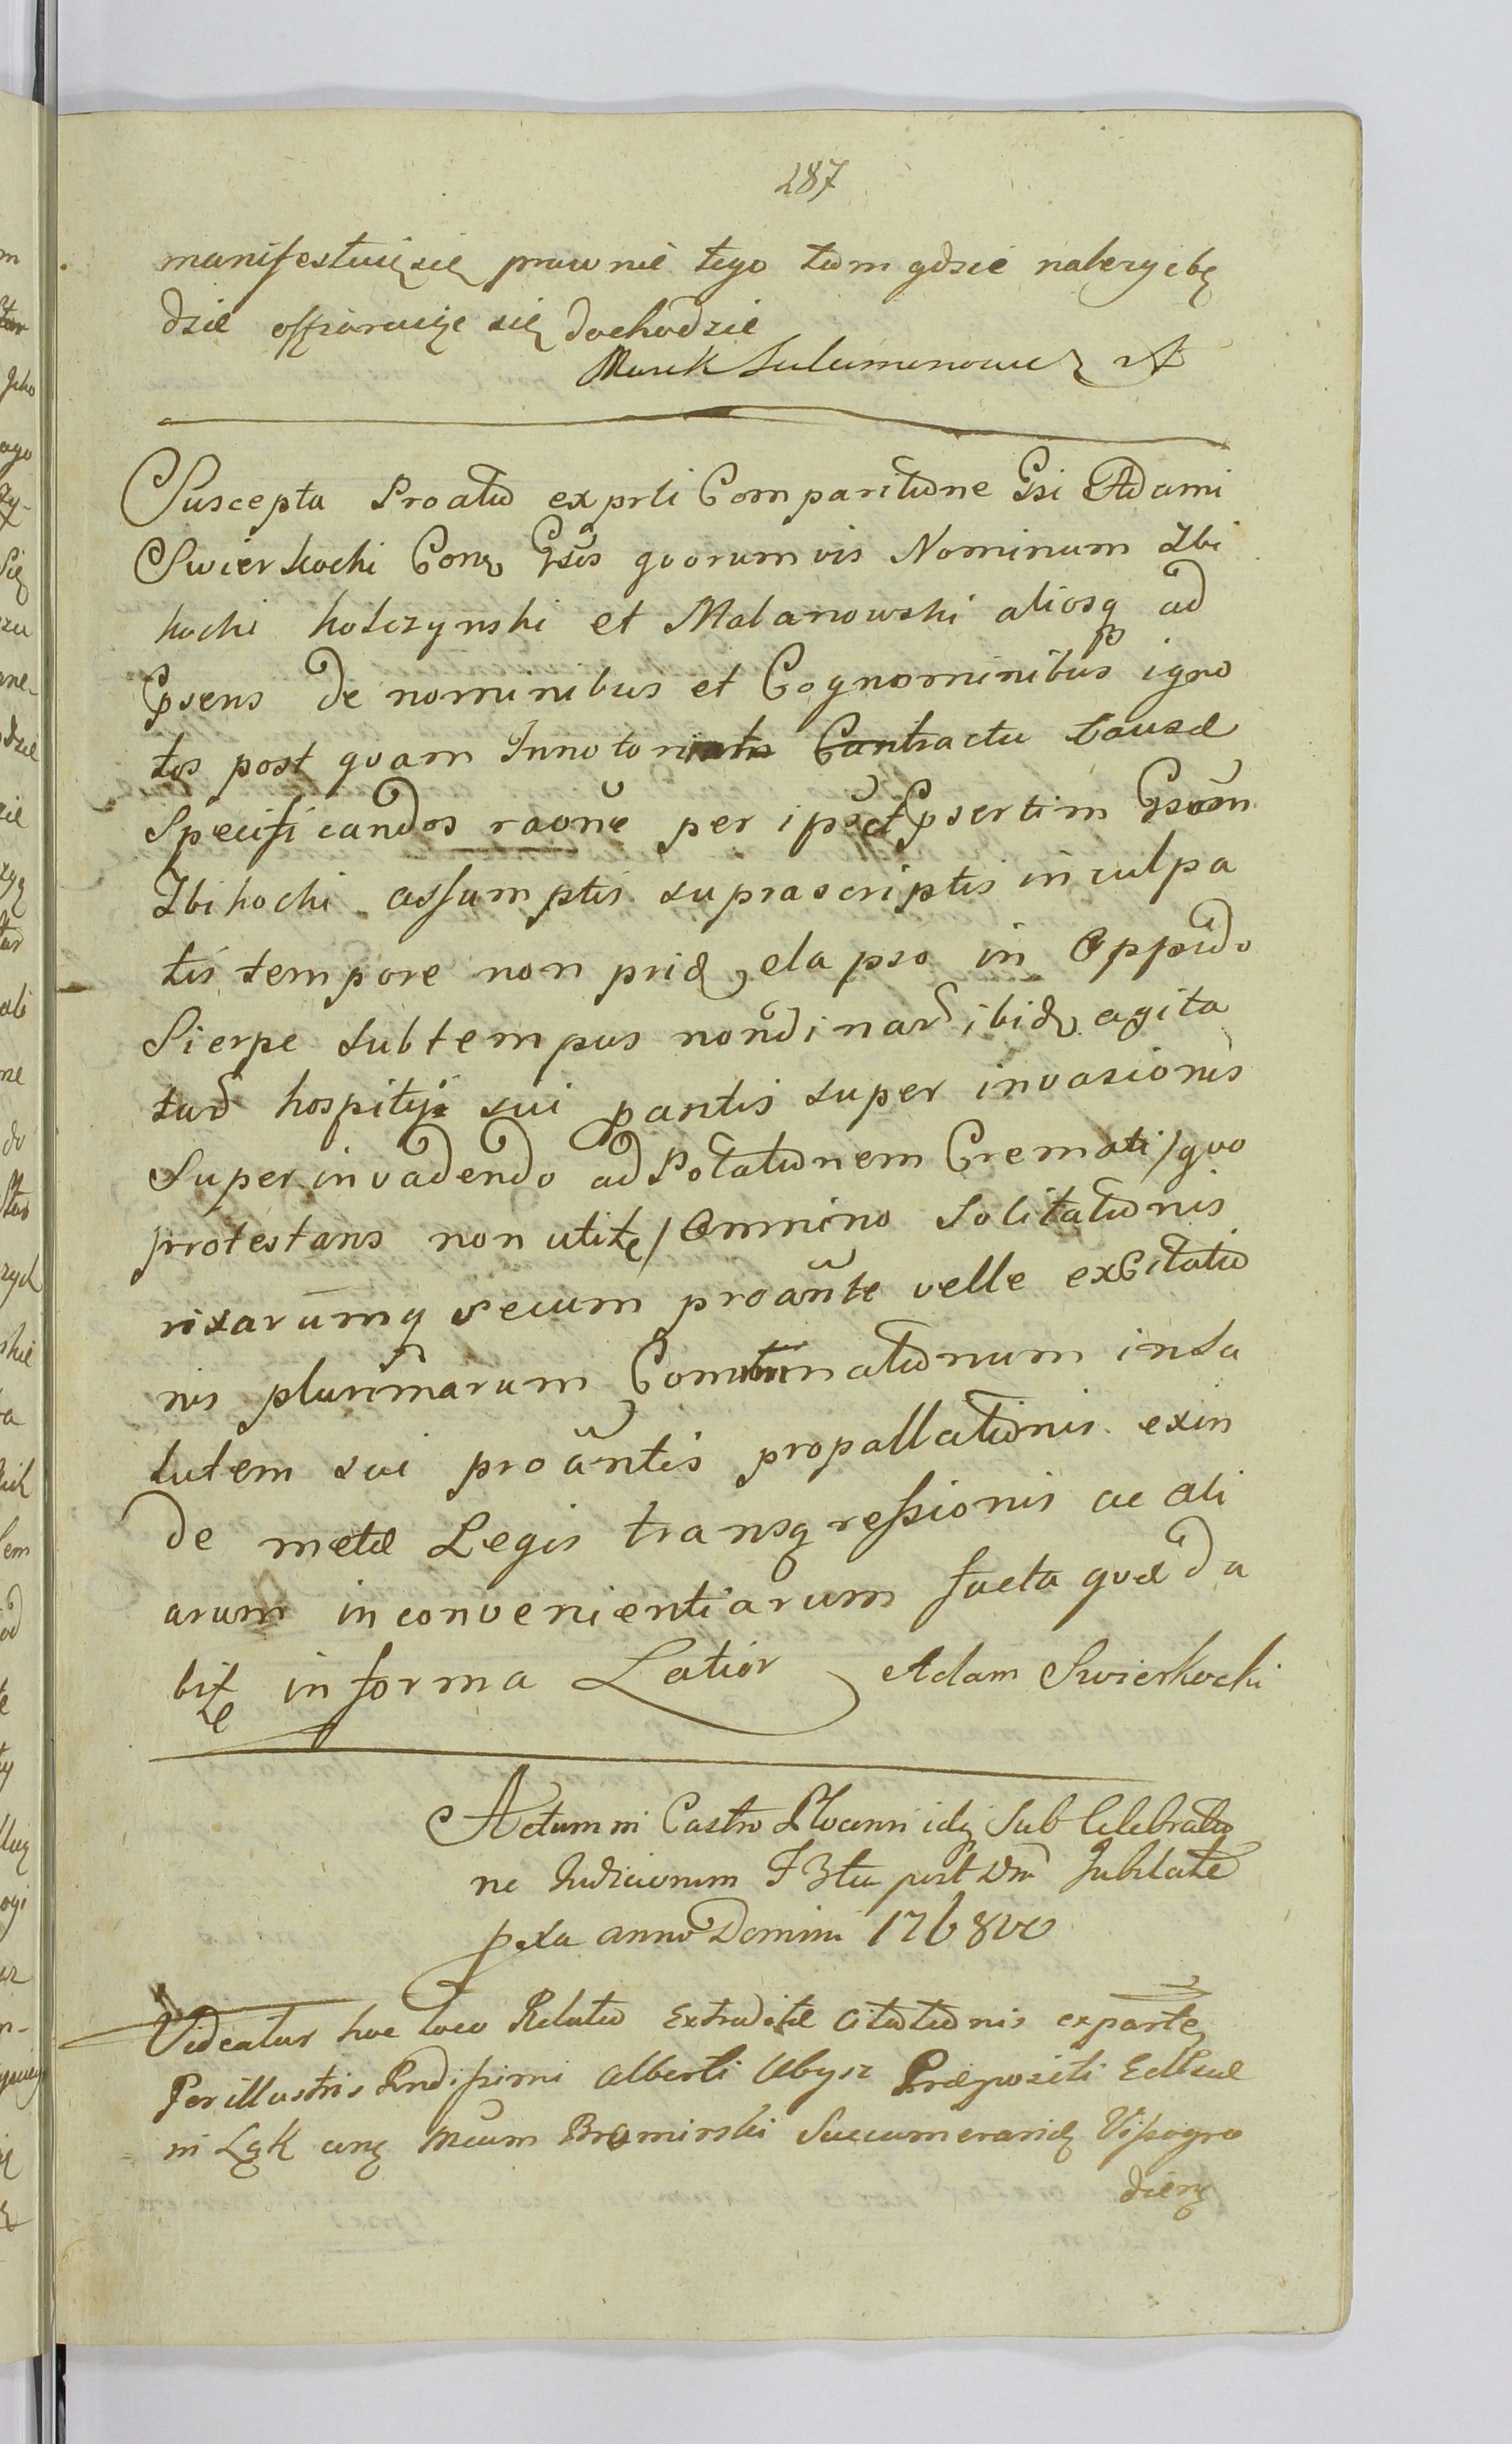 287
manifestuię się prawnie tego tam gdzie należyć bę
dzie offiaruiąc się dochodzić
Marek Sulumunowicz
Suscepta Proatio ex prti Comparitione Gsi Adami
Swierkocki Con Gsos quorumvis Nominum Zbi
kocki Kolczynski et Malanowski aliosq ad
Psens de nominibus et Cognominibus igno
tos post quam Contractu causæ
Specificandos raoñe per ipsos et Psertim Gsom
Zbikocki assumptis supra scriptis in culpa
tis tempore non prid elapso in Oppido
Sierpc sub tempus nondinar ibid agita
tar hospitij sui pantis super invasionis
Super invadendo ad Potationem Cremati / quo
protestans non utitr / Omnino Solitationis
rixarumq secum proante velle excitatio
nis plurimarum Comminationum in sa
lutem sui proantis propallationis exin
de metæ Legis transgressionis ac ali
arum inconvenientiarum facta quæ da
bitr in forma Latiori Adam Swierkocki
Actum in Castro Plocen sub Celebratio
ne Judiciorum F 3tia post Dm Jubilate
pxa anno Domini 1768vo
Videatur hoc loco Relatio Extraditæ Citationis ex parte
Perillustris Rndissimi Alberti Præpositi Ecllsiæ
in Łęk cong Mcum Bromirski Succamerarid Vissogro
dien